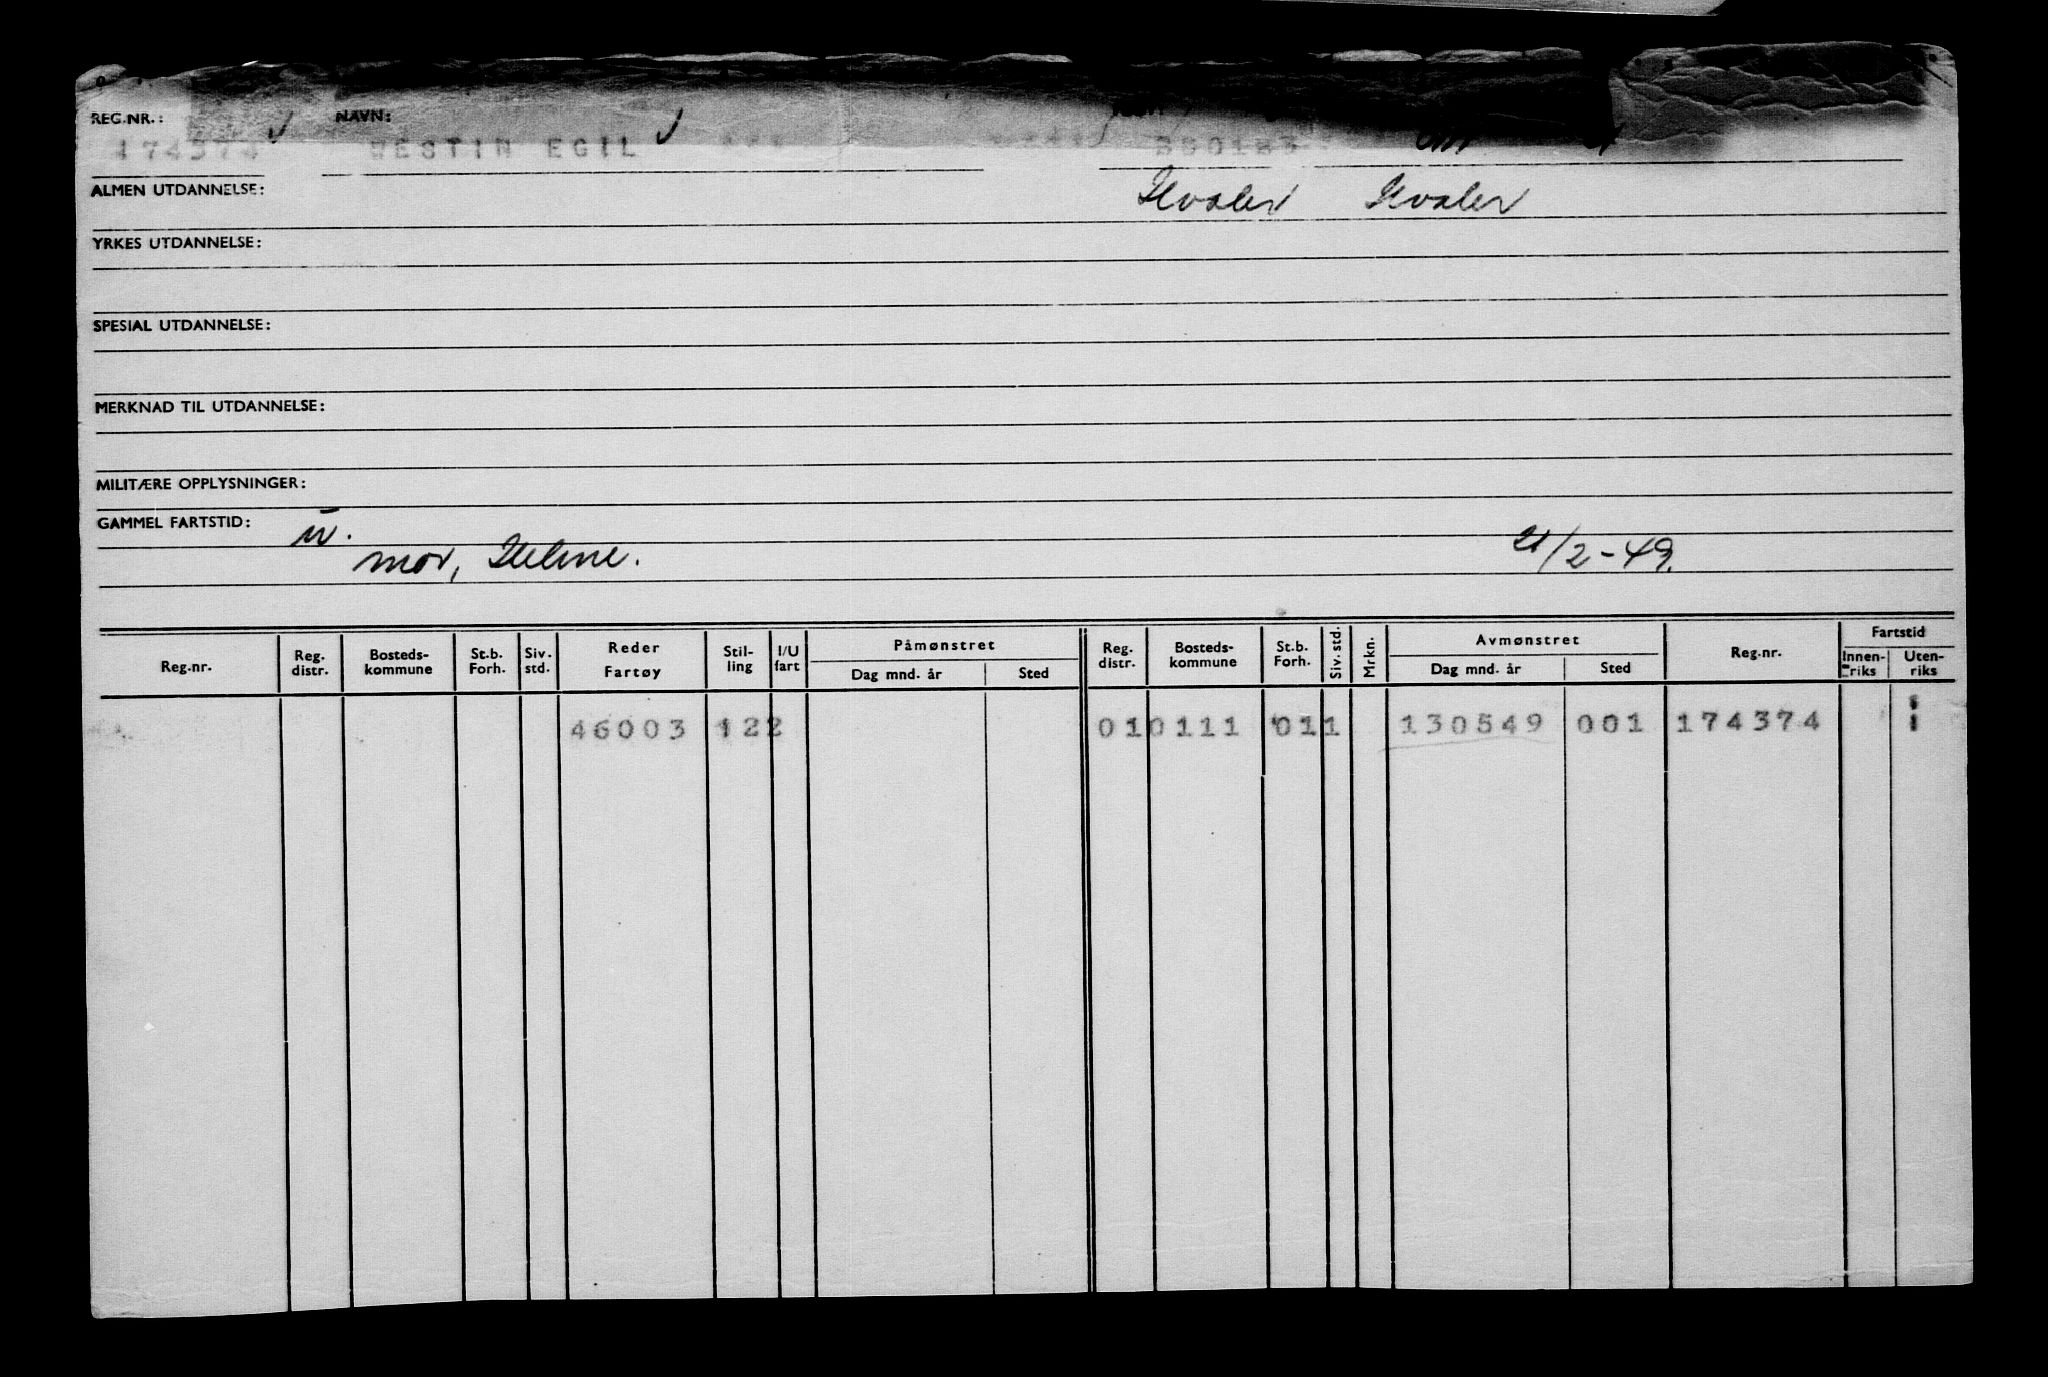 REG.NR.: NAVN:
174374 WESTIN EGIL
ALMEN UTDANNELSE: Hvaler Hvaler
YRKES UTDANNELSE:
SPESIAL UTDANNELSE:
MERKNAD TIL UTDANNELSE:
MILITÆRE OPPLYSNINGER:
GAMMEL FARTSTID:
mor, Helene. 21/2-49.
Reg.nr. Reg. distr. Bosteds-kommune St.b. Forh. Siv. std. Reder Fartøy Stil-ling I/U fart Påmønstret Dag mnd. år Sted Reg. distr. Bosteds-kommune St.b. Forh. Siv. std. Mrkn. Avmønstret Dag mnd. år Sted Reg.nr. Fartstid Innen-riks Uten-riks
46003 122 010111 011 130549 001 174374